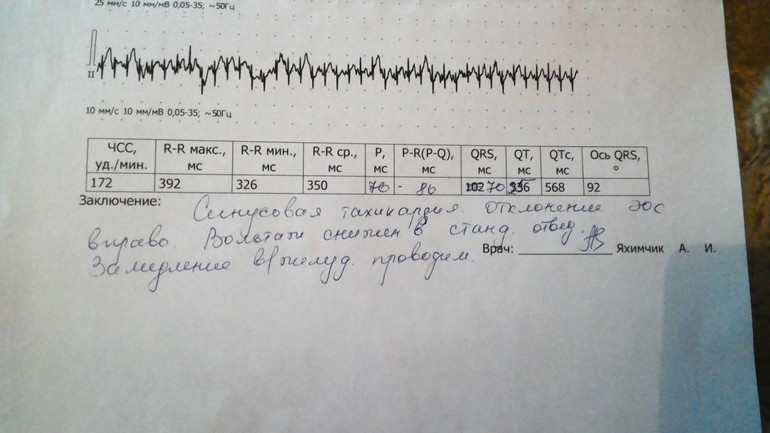 25 мм/с 10 мм/мВ 0,05-35; ~50Гц
II
10 мм/с 10 мм/мВ 0,05-35; ~50Гц
ЧСС, уд./мин. R-R макс., мс R-R мин., мс R-R ср., мс P, мс P-R(P-Q), мс QRS, мс QT, мс QTc, мс Ось QRS, °
172 392 326 350 70 - 86 102 70 568 92
Заключение: Синусовая тахикардия. Отклонение эос
вправо. Вольтаж снижен в станд. отвед.
Врач: Яхимчик А. И.
Замедление в/желуд. проводим.